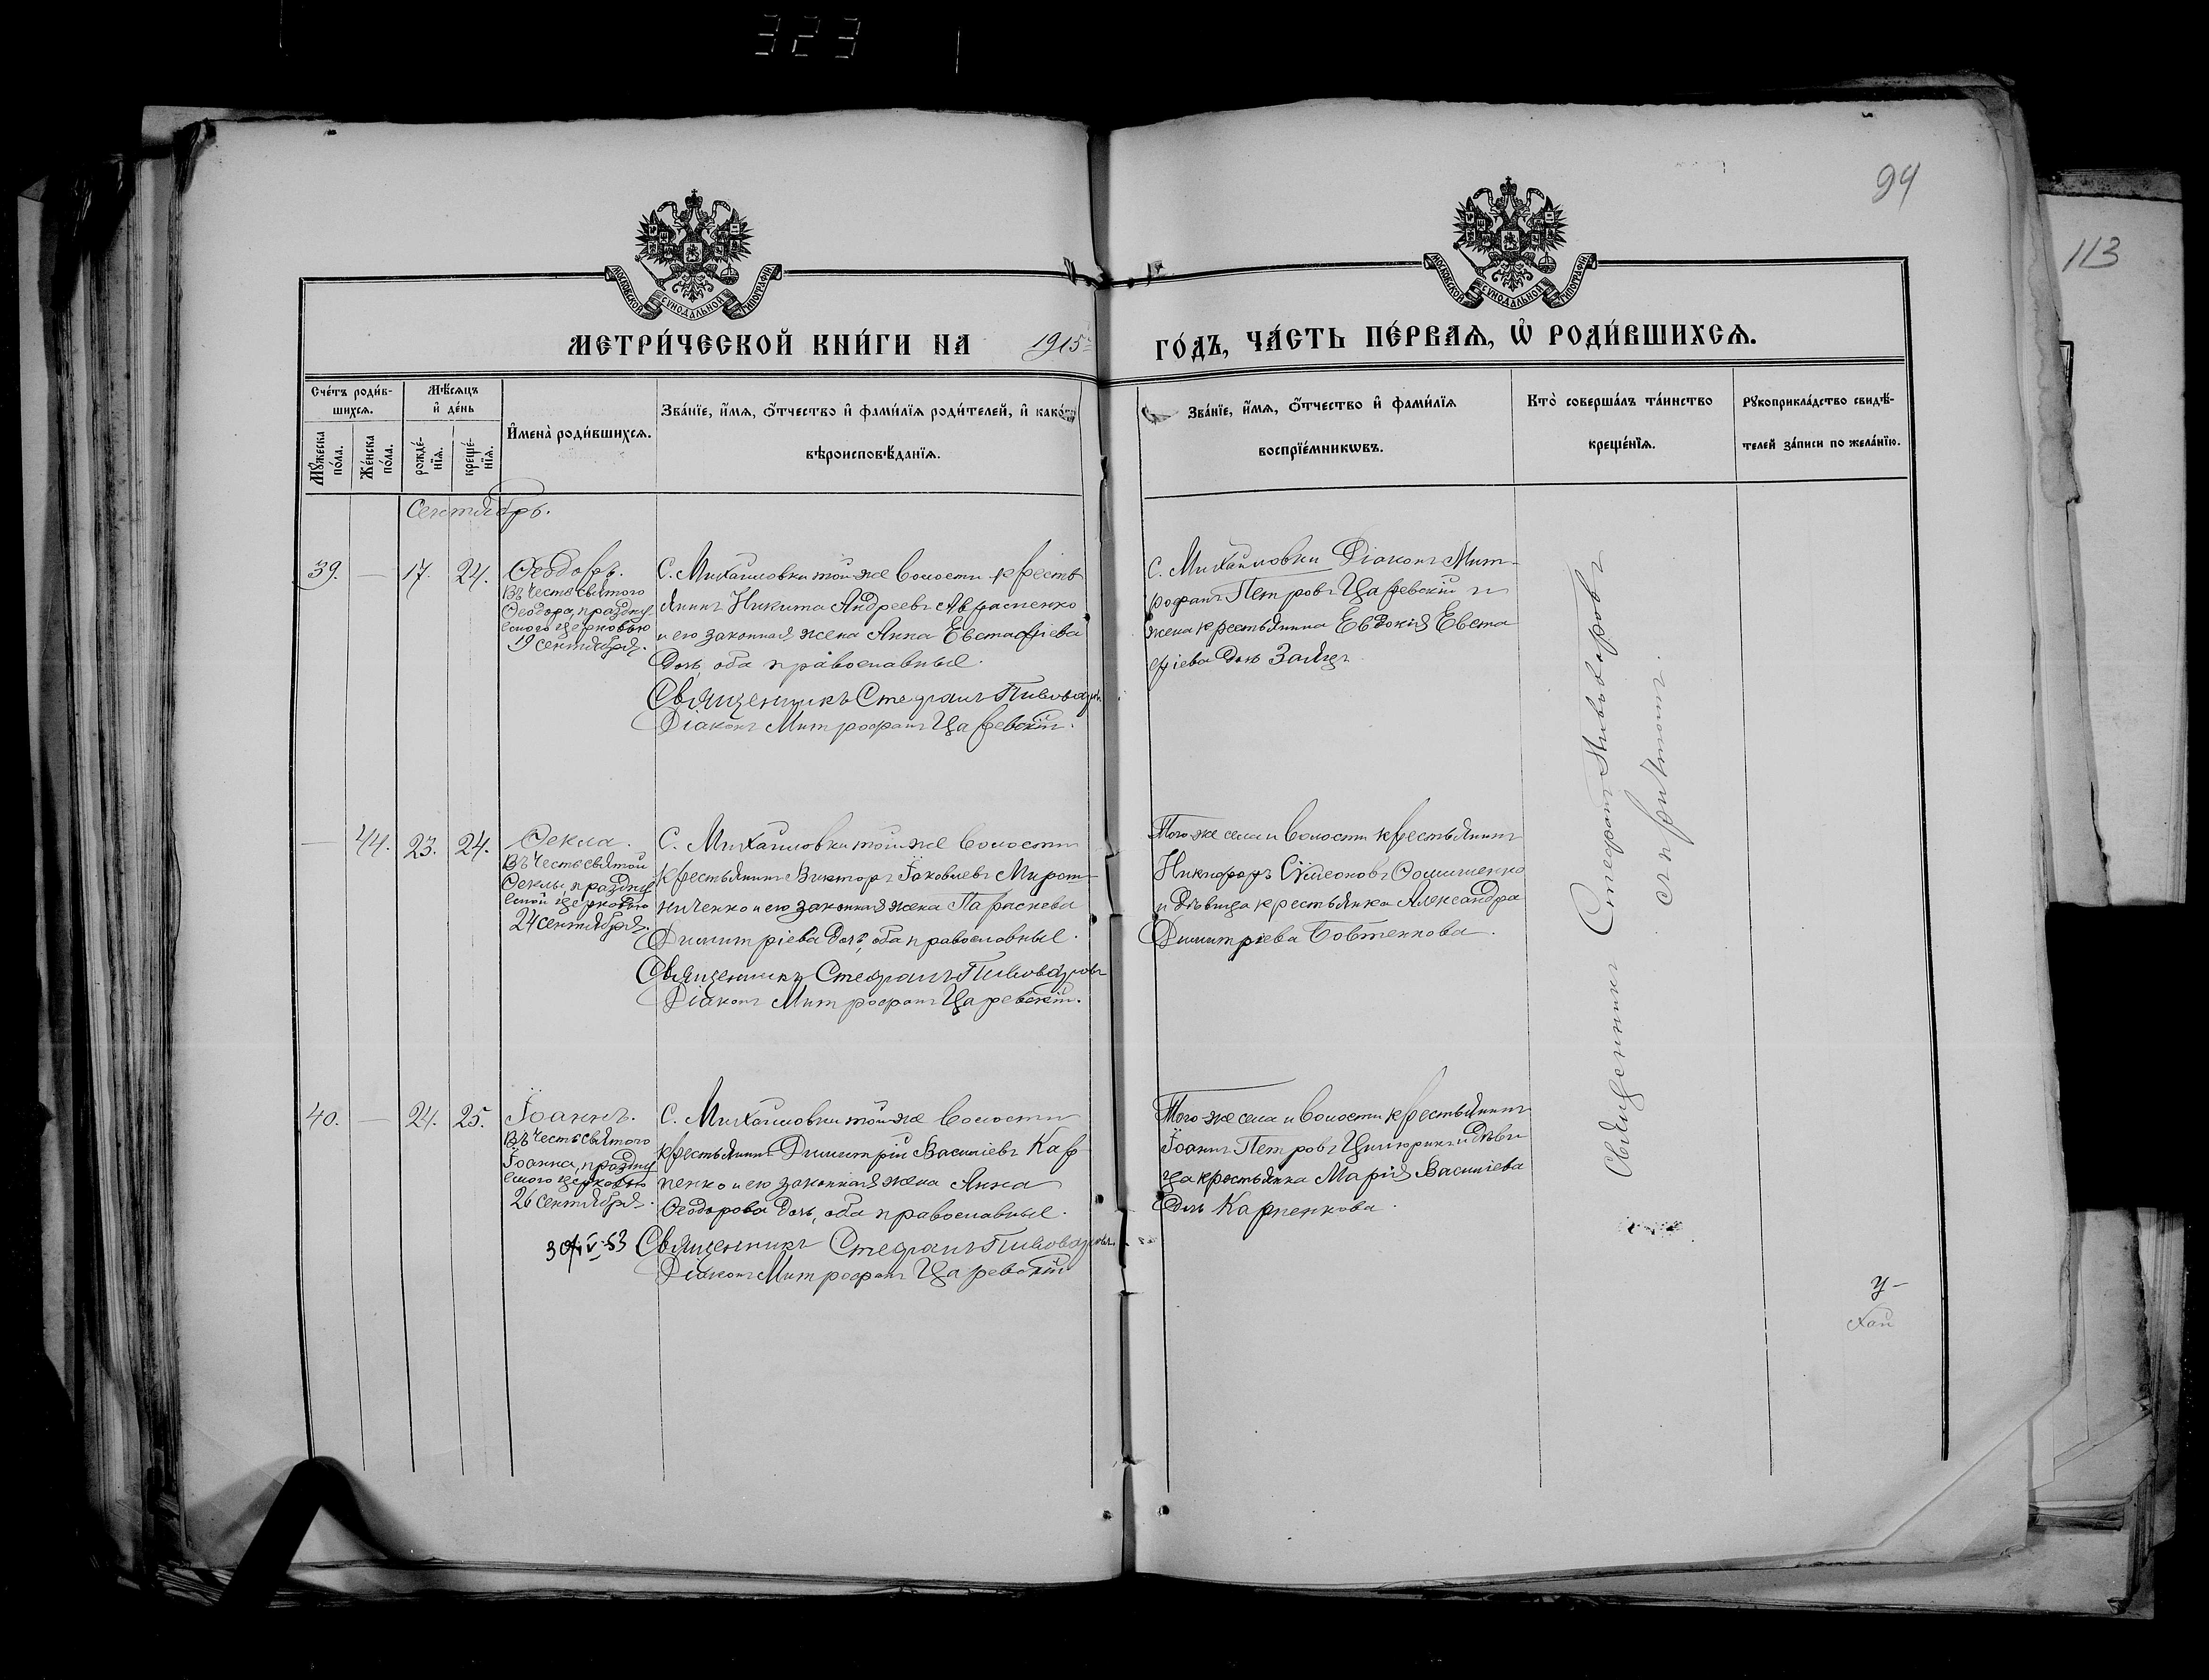 323
94
113
МОСКОВСКОЙ СѴНОДАЛЬНОЙ ТИПОГРАФІИ
МОСКОВСКОЙ СѴНОДАЛЬНОЙ ТИПОГРАФІИ
МЕТРИ́ЧЕСКОЙ КНИ́ГИ НА 1915 ГО́ДЪ, ЧА́СТЬ ПЕ́РВАѦ, Ѡ҆ РОДИ́ВШИХСѦ.
Сче́тъ роди́в-
шихсѧ.
Мꙋ́жеска по́ла.
Же́нска по́ла.
Мѣ́сѧцъ
и҆ де́нь
рожде́-
нїѧ.
креще́-
нїѧ.
И҆мена̀ роди́вшихсѧ.
Зва́нїе, и҆́мѧ, ѻ҆́тчество и҆ фами́лїѧ роди́телей, и҆ како́гѡ
вѣроисповѣ́данїѧ.
Зва́нїе, и҆́мѧ, ѻ҆́тчество и҆ фами́лїѧ
воспрїе́мникѡвъ.
Кто̀ соверша́лъ та́инство
креще́нїѧ.
Рꙋкоприкла́дство свидѣ́-
телей за́писи по жела́нїю.
Сентябрь.
39. — 17. 24.
Ѳеодоръ.
Въ честь святого
Ѳеодора, праздну
емого церковью
19 сентября.
С. Михайловки той же волости кресть
янинъ Никита Андреевъ Авраменко
и его законная жена Анна Евстафіева
дочь, оба православные.
Священникъ Стефанъ Пивоваровъ
Діаконъ Митрофанъ Царевскій.
С. Михайловки Діаконъ Мит-
рофанъ Петровъ Царевскій и
жена крестьянина Евдокія Евста
фіева дочь Заяцъ
— 44. 23. 24.
Ѳекла.
Въ честь святой
Ѳеклы, праздну
емой церковью
24 сентября.
С. Михайловки той же волости
крестьянинъ Викторъ Іаковлевъ Мирош-
ниченко и его законная жена Параскева
Димитріева дочь, оба православные.
Священникъ Стефанъ Пивоваровъ
Діаконъ Митрофанъ Царевскій.
Того же села и волости крестьянинъ
Никифоръ Сѵмеоновъ
и дѣвица крестьянка Александра
Димитріева Бовтенкова.
40. — 24. 25.
Іоаннъ.
Въ честь святого
Іоанна, праздну
емого церковью
26 сентября.
С. Михайловки той же волости
крестьянинъ Димитрій Василіевъ Кар
пенко и его законная жена Анна
Ѳеодорова дочь, оба православные.
Священникъ Стефанъ Пивоваровъ
Діаконъ Митрофанъ Царевскій
Того же села и волости крестьянинъ
Іоаннъ Петровъ Цилюрикъ и дѣви
ца крестьянка Марія Василіева
дочь Карпенкова.
Священникъ Стефанъ Пивоваровъ
съ причтомъ.